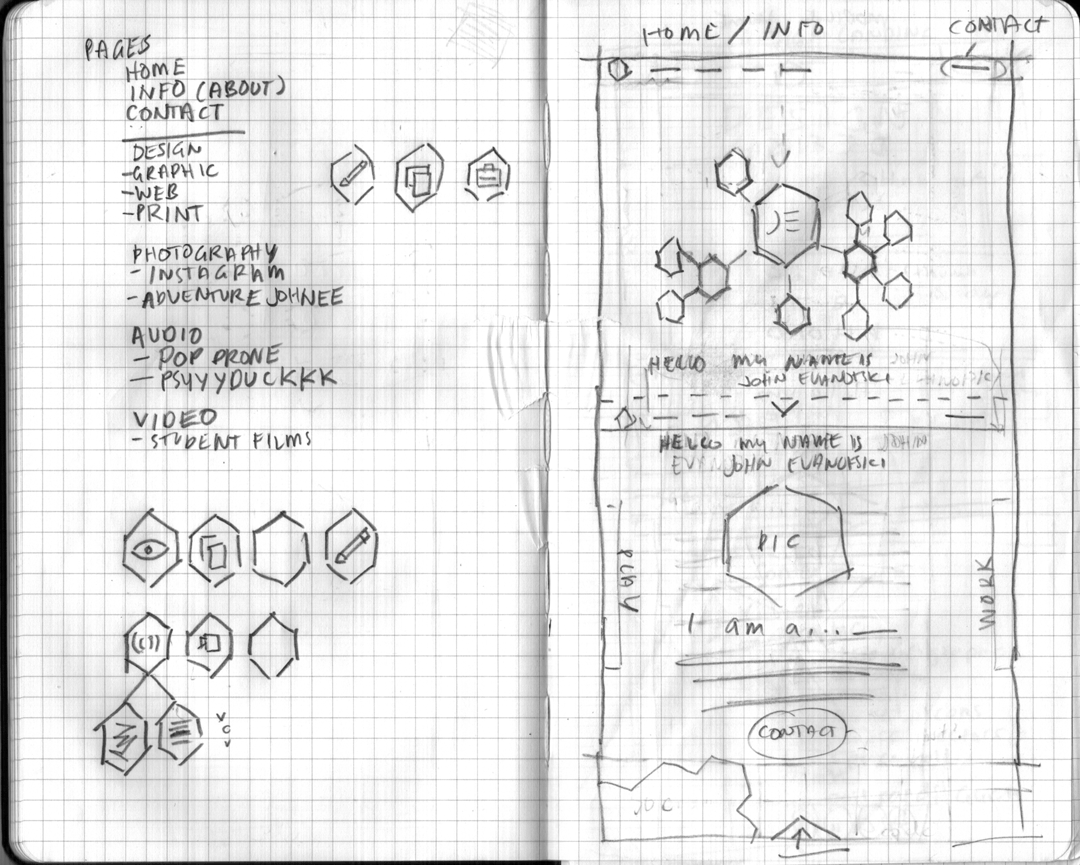 PAGES
HOME
INFO (ABOUT)
CONTACT
DESIGN
-GRAPHIC
-WEB
-PRINT
PHOTOGRAPHY
- INSTAGRAM
- ADVENTURE JOHNEE
AUDIO
- POP DRONE
- PSYYYDUCKKK
VIDEO
- STUDENT FILMS
HOME / INFO
CONTACT
HELLO MY NAME IS
JOHN EVANOFSKI
HELLO MY NAME IS JOHN
JOHN EVANOFSKI
PIC
PLAY
WORK
I am a...
CONTACT